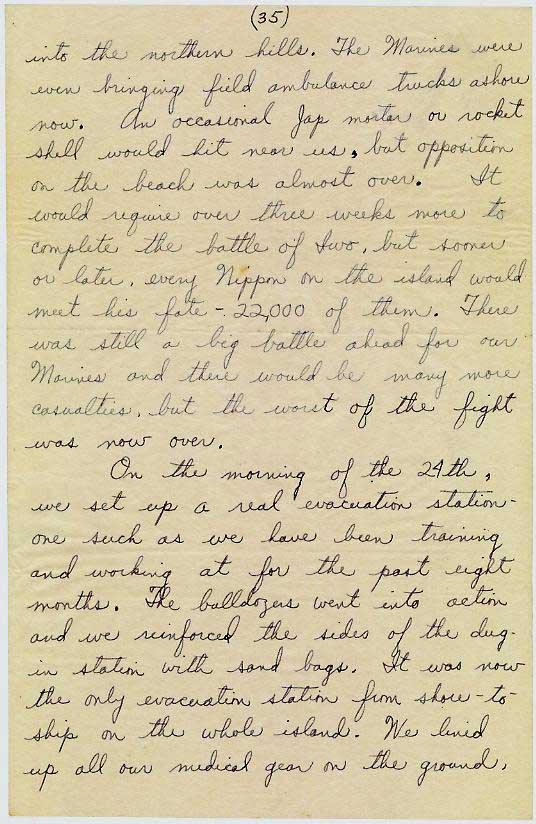 (35)
into the northern hills. The Marines were
even bringing field ambulance trucks ashore
now. An occasional Jap mortar or rocket
shell would hit near us, but opposition
on the beach was almost over. It
would require over three weeks more to
complete the battle of Iwo, but sooner
or later, every Nippon on the island would
meet his fate - 22,000 of them. There
was still a big battle ahead for our
Marines and there would be many more
casualties, but the worst of the fight
was now over.
On the morning of the 24th,
we set up a real evacuation station -
one such as we have been training
and working at for the past eight
months. The bulldozers went into action
and we reinforced the sides of the dug-
in station with sand bags. It was now
the only evacuation station from shore-to-
ship on the whole island. We lined
up all our medical gear on the ground,